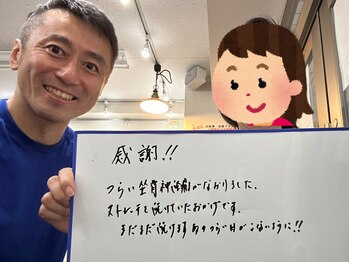 感謝!!
つらい坐骨神経痛がなおりました。
ストレッチを続けていたおかげです。
まだまだ続けます あのつらい日がこないように!!